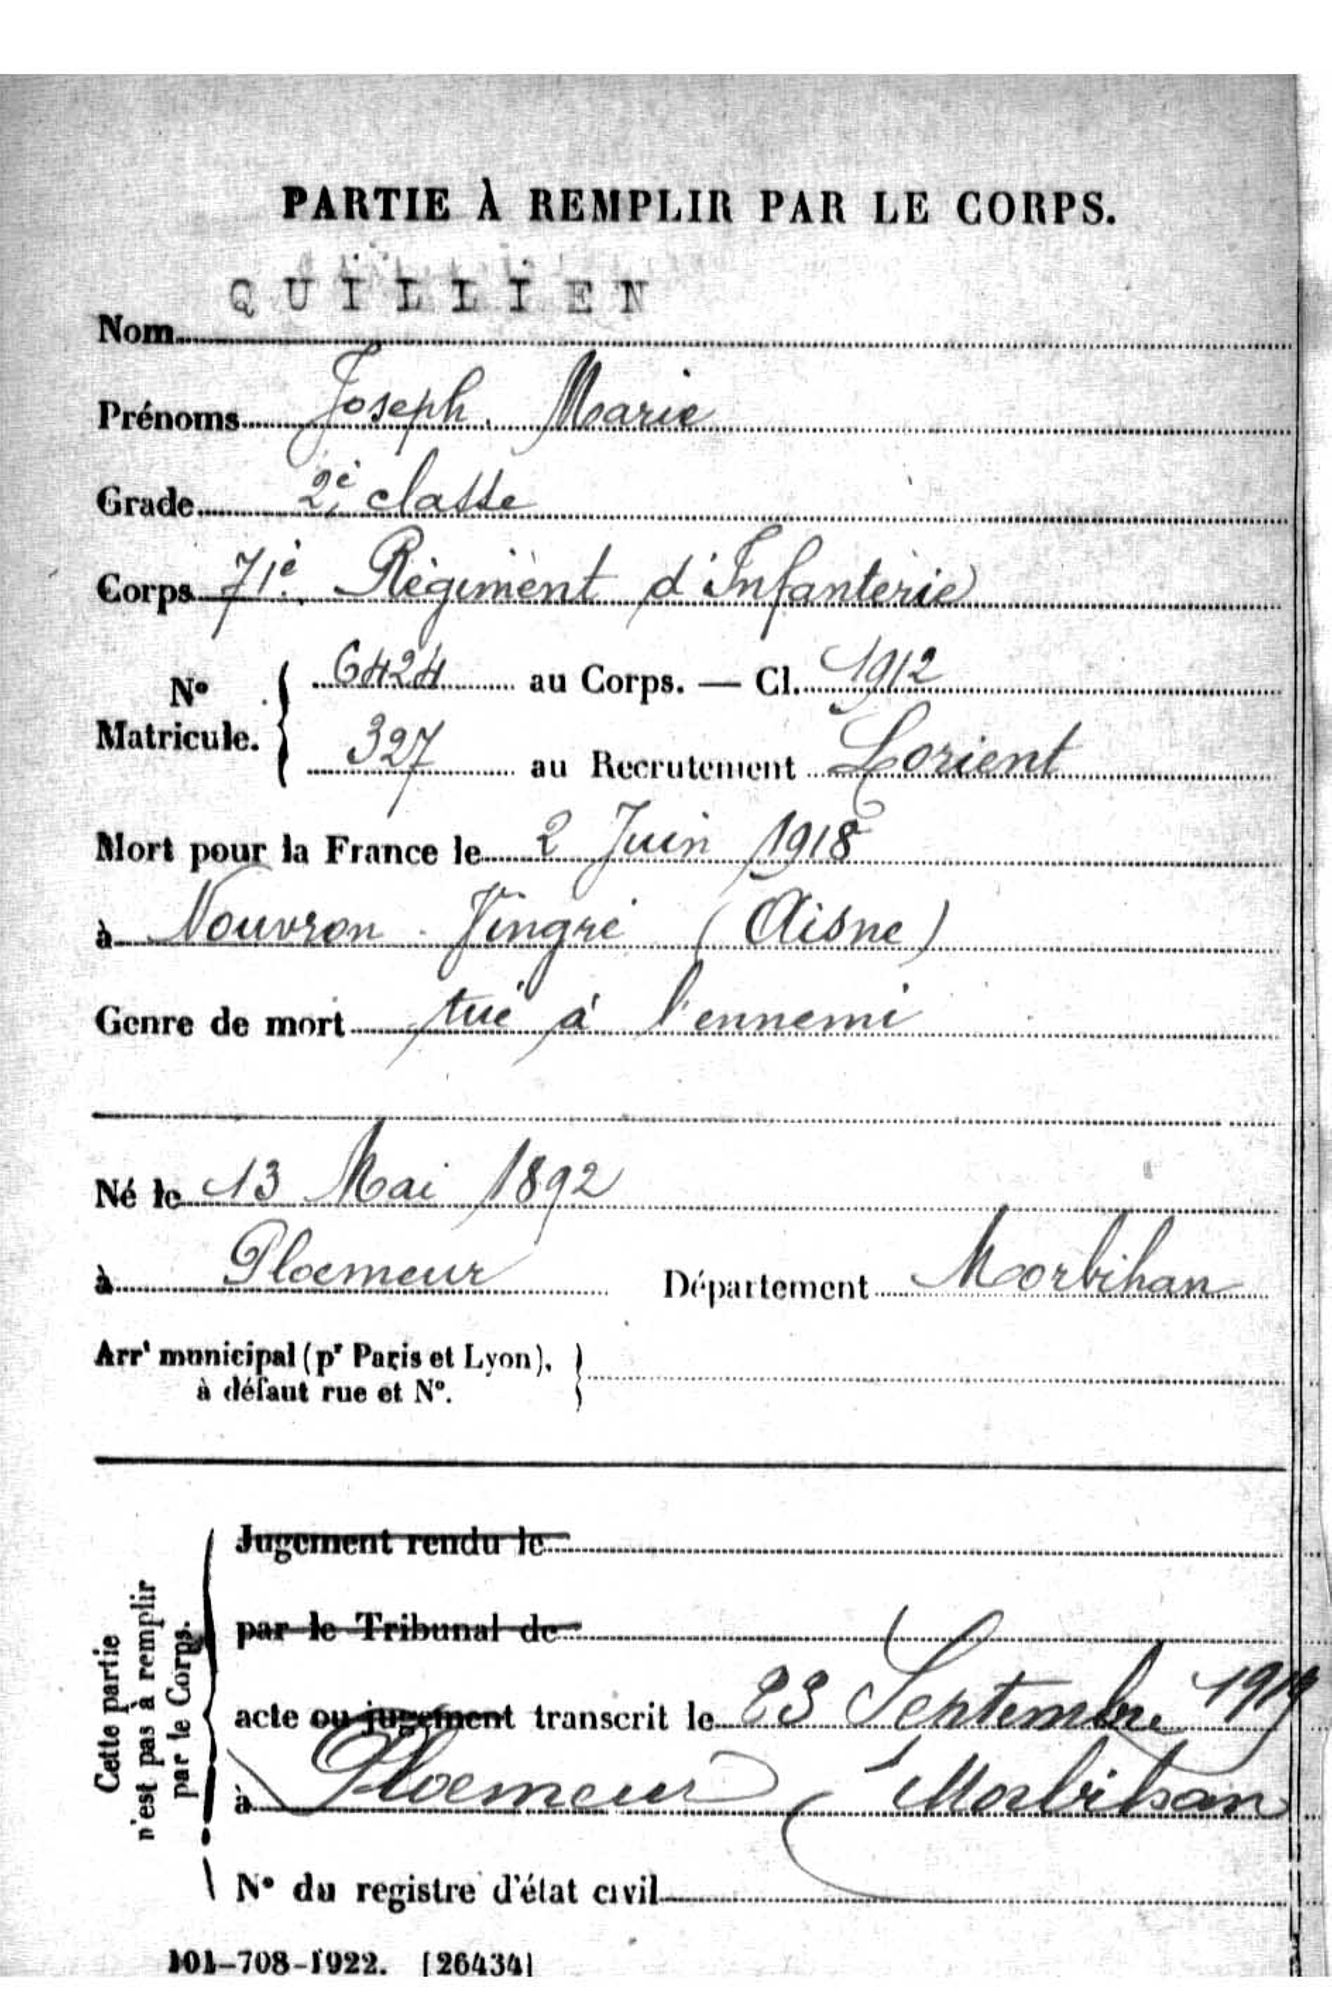 PARTIE À REMPLIR PAR LE CORPS.
QUILLIEN
Nom
Prénoms Joseph. Marie
Grade 2è classe
Corps 71è Régiment d'Infanterie
N° Matricule. { 6424 au Corps. — Cl. 1912
327 au Recrutement Lorient
Mort pour la France le 2 Juin 1918
à Nouvron - Vingré (Aisne)
Genre de mort tué à l'ennemi
Né le 13 Mai 1892
à Ploemeur Département Morbihan
Arrt municipal (pr Paris et Lyon),
à défaut rue et N°.
Cette partie
n'est pas à remplir
par le Corps.
Jugement rendu le
par le Tribunal de
acte ou jugement transcrit le 23 Septembre 1919
à Ploemeur (Morbihan
N° du registre d'état civil
101-708-1922. [26434]